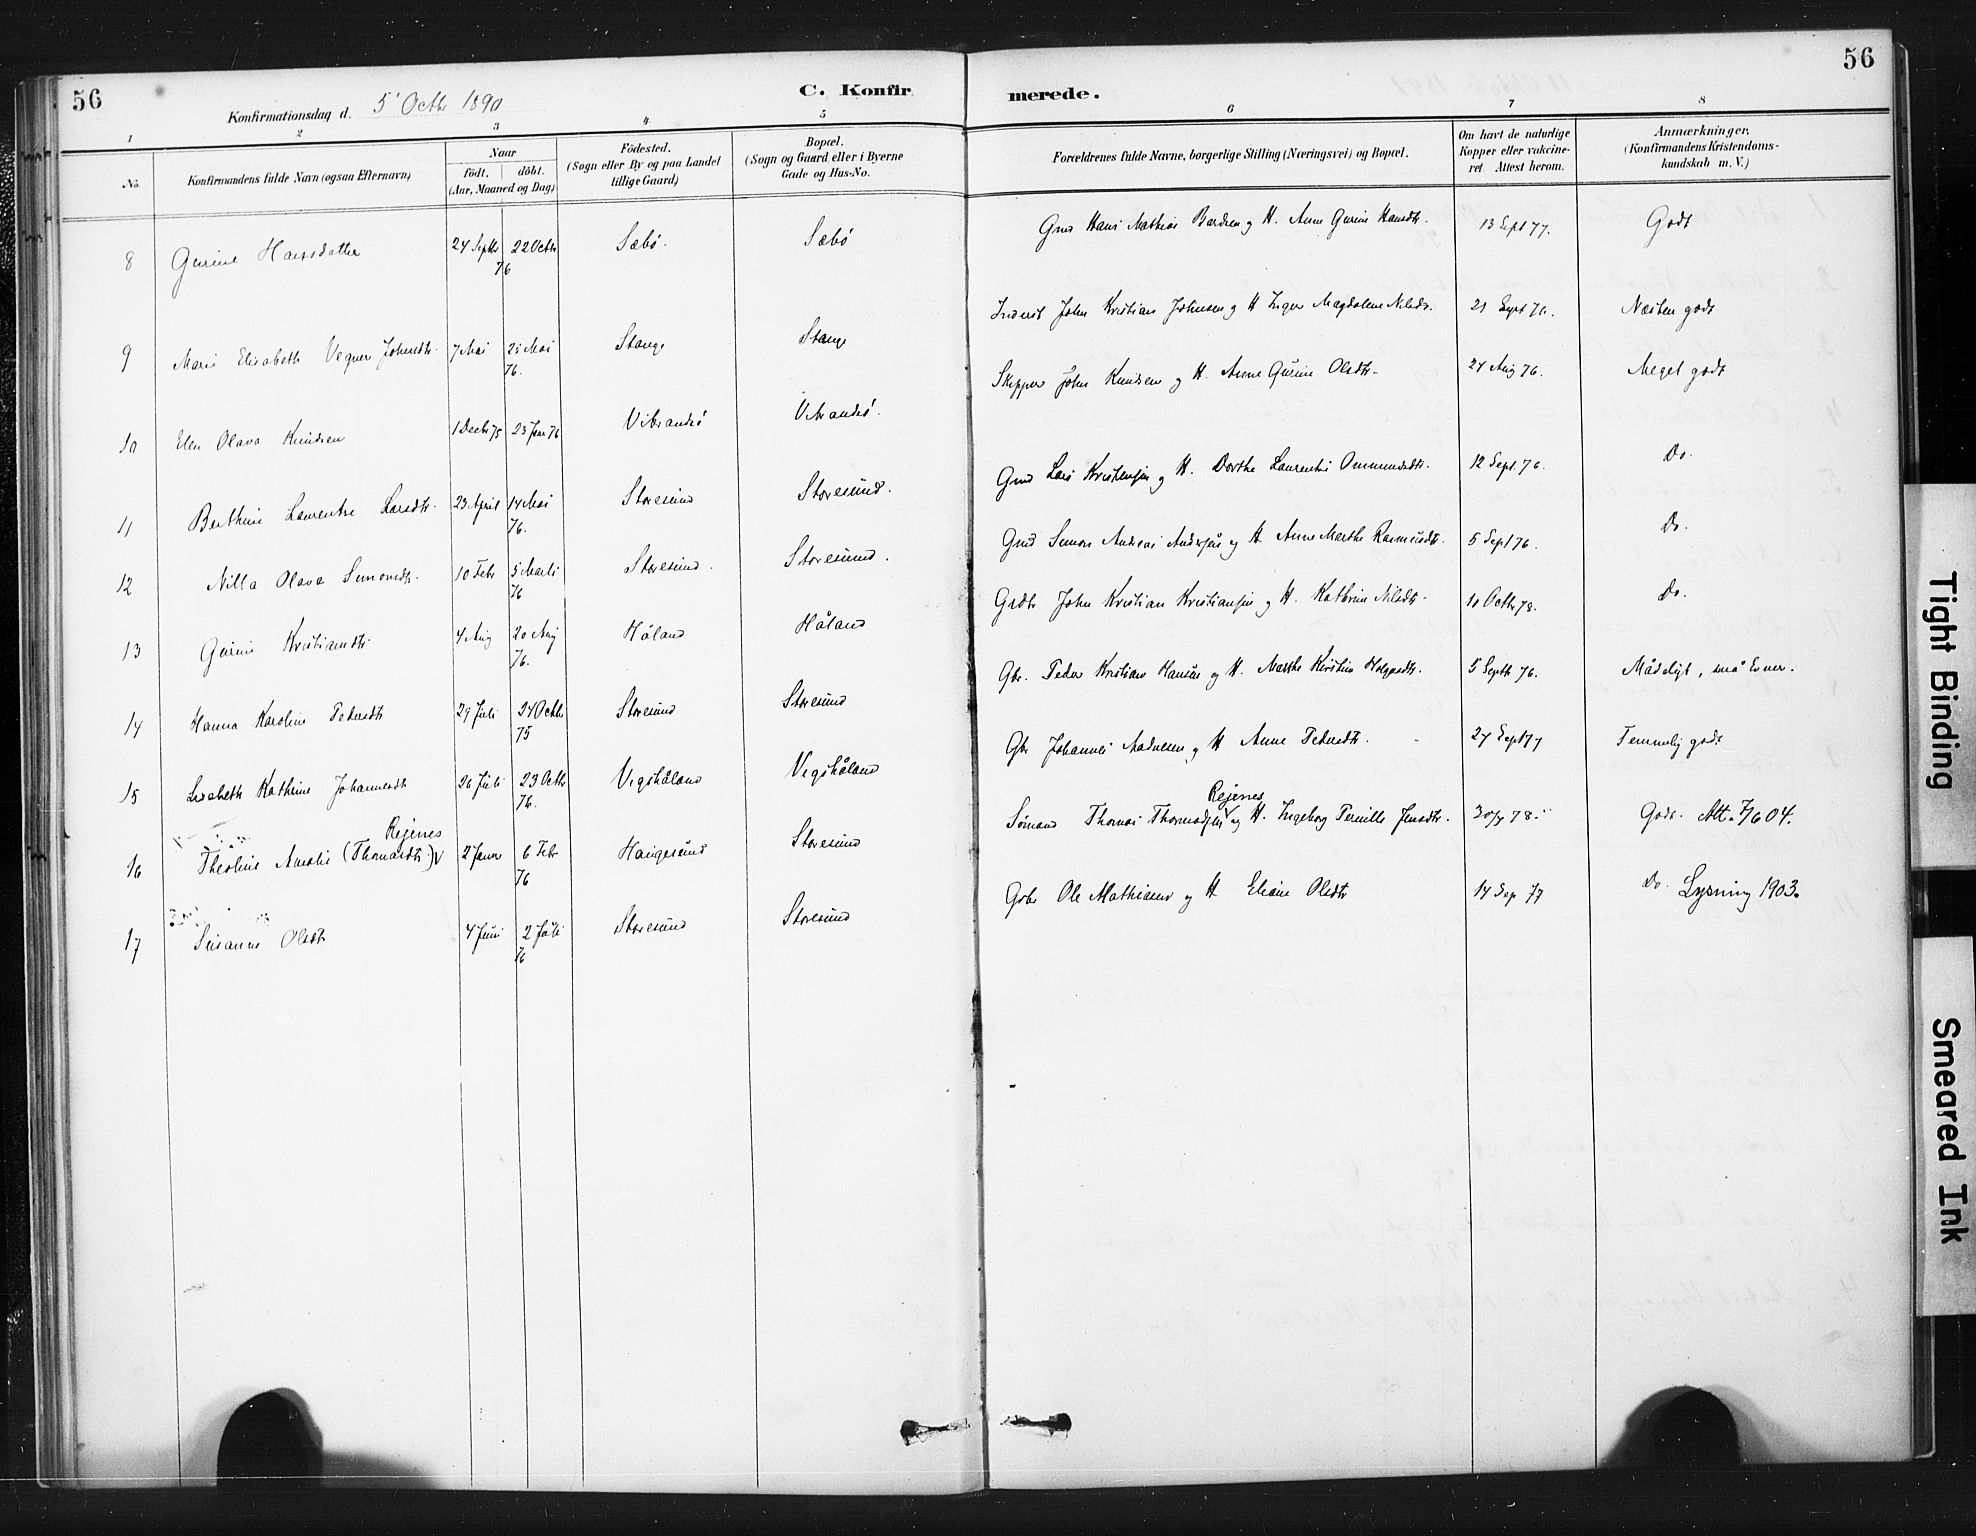 56
Konfirmationsdag d. 5' Octbr 1890
C. Konfirmerede.
56
1 2 3 4 5 6 7 8
No.
Konfirmandens fulde Navn (ogsaa Efternavn)
Naar
födt. döbt.
(Aar, Maaned og Dag)
Födested.
(Sogn eller By og paa Landet
tillige Gaard)
Bopæl.
(Sogn og Gaard eller i Byerne
Gade og Hus-No.
Forældrenes fulde Navne, borgerlige Stilling (Næringsvei) og Bopæl.
Om havt de naturlige
Kopper eller vakcine-
ret Attest herom.
Anmærkninger.
(Konfirmandens Kristendoms-
kundskab m. V.)
8 Gurine Hansdatter 24 Septbr 22 Octbr 76 Sæbö. Sæbö Gmd Hans Mathias Bardsen og H. Anne Gurine Hansdtr. 13 Sept 77. Godt
9 Marie Elisabeth Vegner Johnsdtr. 7 Mai 25 Mai 76. Stange Stange Inderst John Kristian Johnsen og H Inger Magdalene Nilsdr. 21 Sept 76. Næsten godt
10 Elen Olava Knudsen 1 Decbr 75 23 Jan 76 Vibrandsö Vibrandsö. Skipper John Knudsen og H. Anne Gurine Olsdtr. 24 Aug 76. Meget godt
11 Berthine Laurentse Larsdtr. 23 April 14 Mai 76. Storesund Storesund. Gmd Lars Kristensen og H. Dorthe Laurentse Ommundsdtr. 12 Sept. 76. Do.
12 Nilla Olava Simonsdtr. 10 Febr 5 Marts 76 Storesund. Storesund. Gmd Simon Andreas Andersen og H Anne Marthe Rasmusdtr. 5 Sept 76. Do.
13 Gurine Kristiansdtr 4 Aug 20 Aug 76. Håland Håland Grdbr John Kristian Kristiansen og H. Kathrine Nilsdtr. 10 Octbr 78. Do.
14 Hanna Karoline Pedersdtr 29 Juli 24 Octbr 75 Storesund Storesund Gbr. Peder Kristian Hansen og H. Marthe Kirstine Holgersdtr. 5 Septb 76. Mådeligt, små Evner.
15 Lisabeth Kathrine Johannesdtr 26 Juli 23 Octbr 76. Vegshåland Vegshåland Gbr Johannes Andersen og H Anne Pedersdtr. 27 Sept 77 Temmelig godt
Rejenes
16 Theoline Amalie (Thomasdtr.) V 2 Janr 6 Febr 76 Haugesund Storesund
Rejenes
Sömand Thomas Thomassen V og H. Ingeborg Pernille Jensdtr. 30/7 78. Godt. Att. 7/6 04.
17 Susanne Olsdtr 4 Juni 2 Juli 76 Storesund Storesund Gbr Ole Mathiasen og H Eliane Olsdtr 14 Sep 77 Do. Lysning 1903.
Tight Binding
Smeared Ink